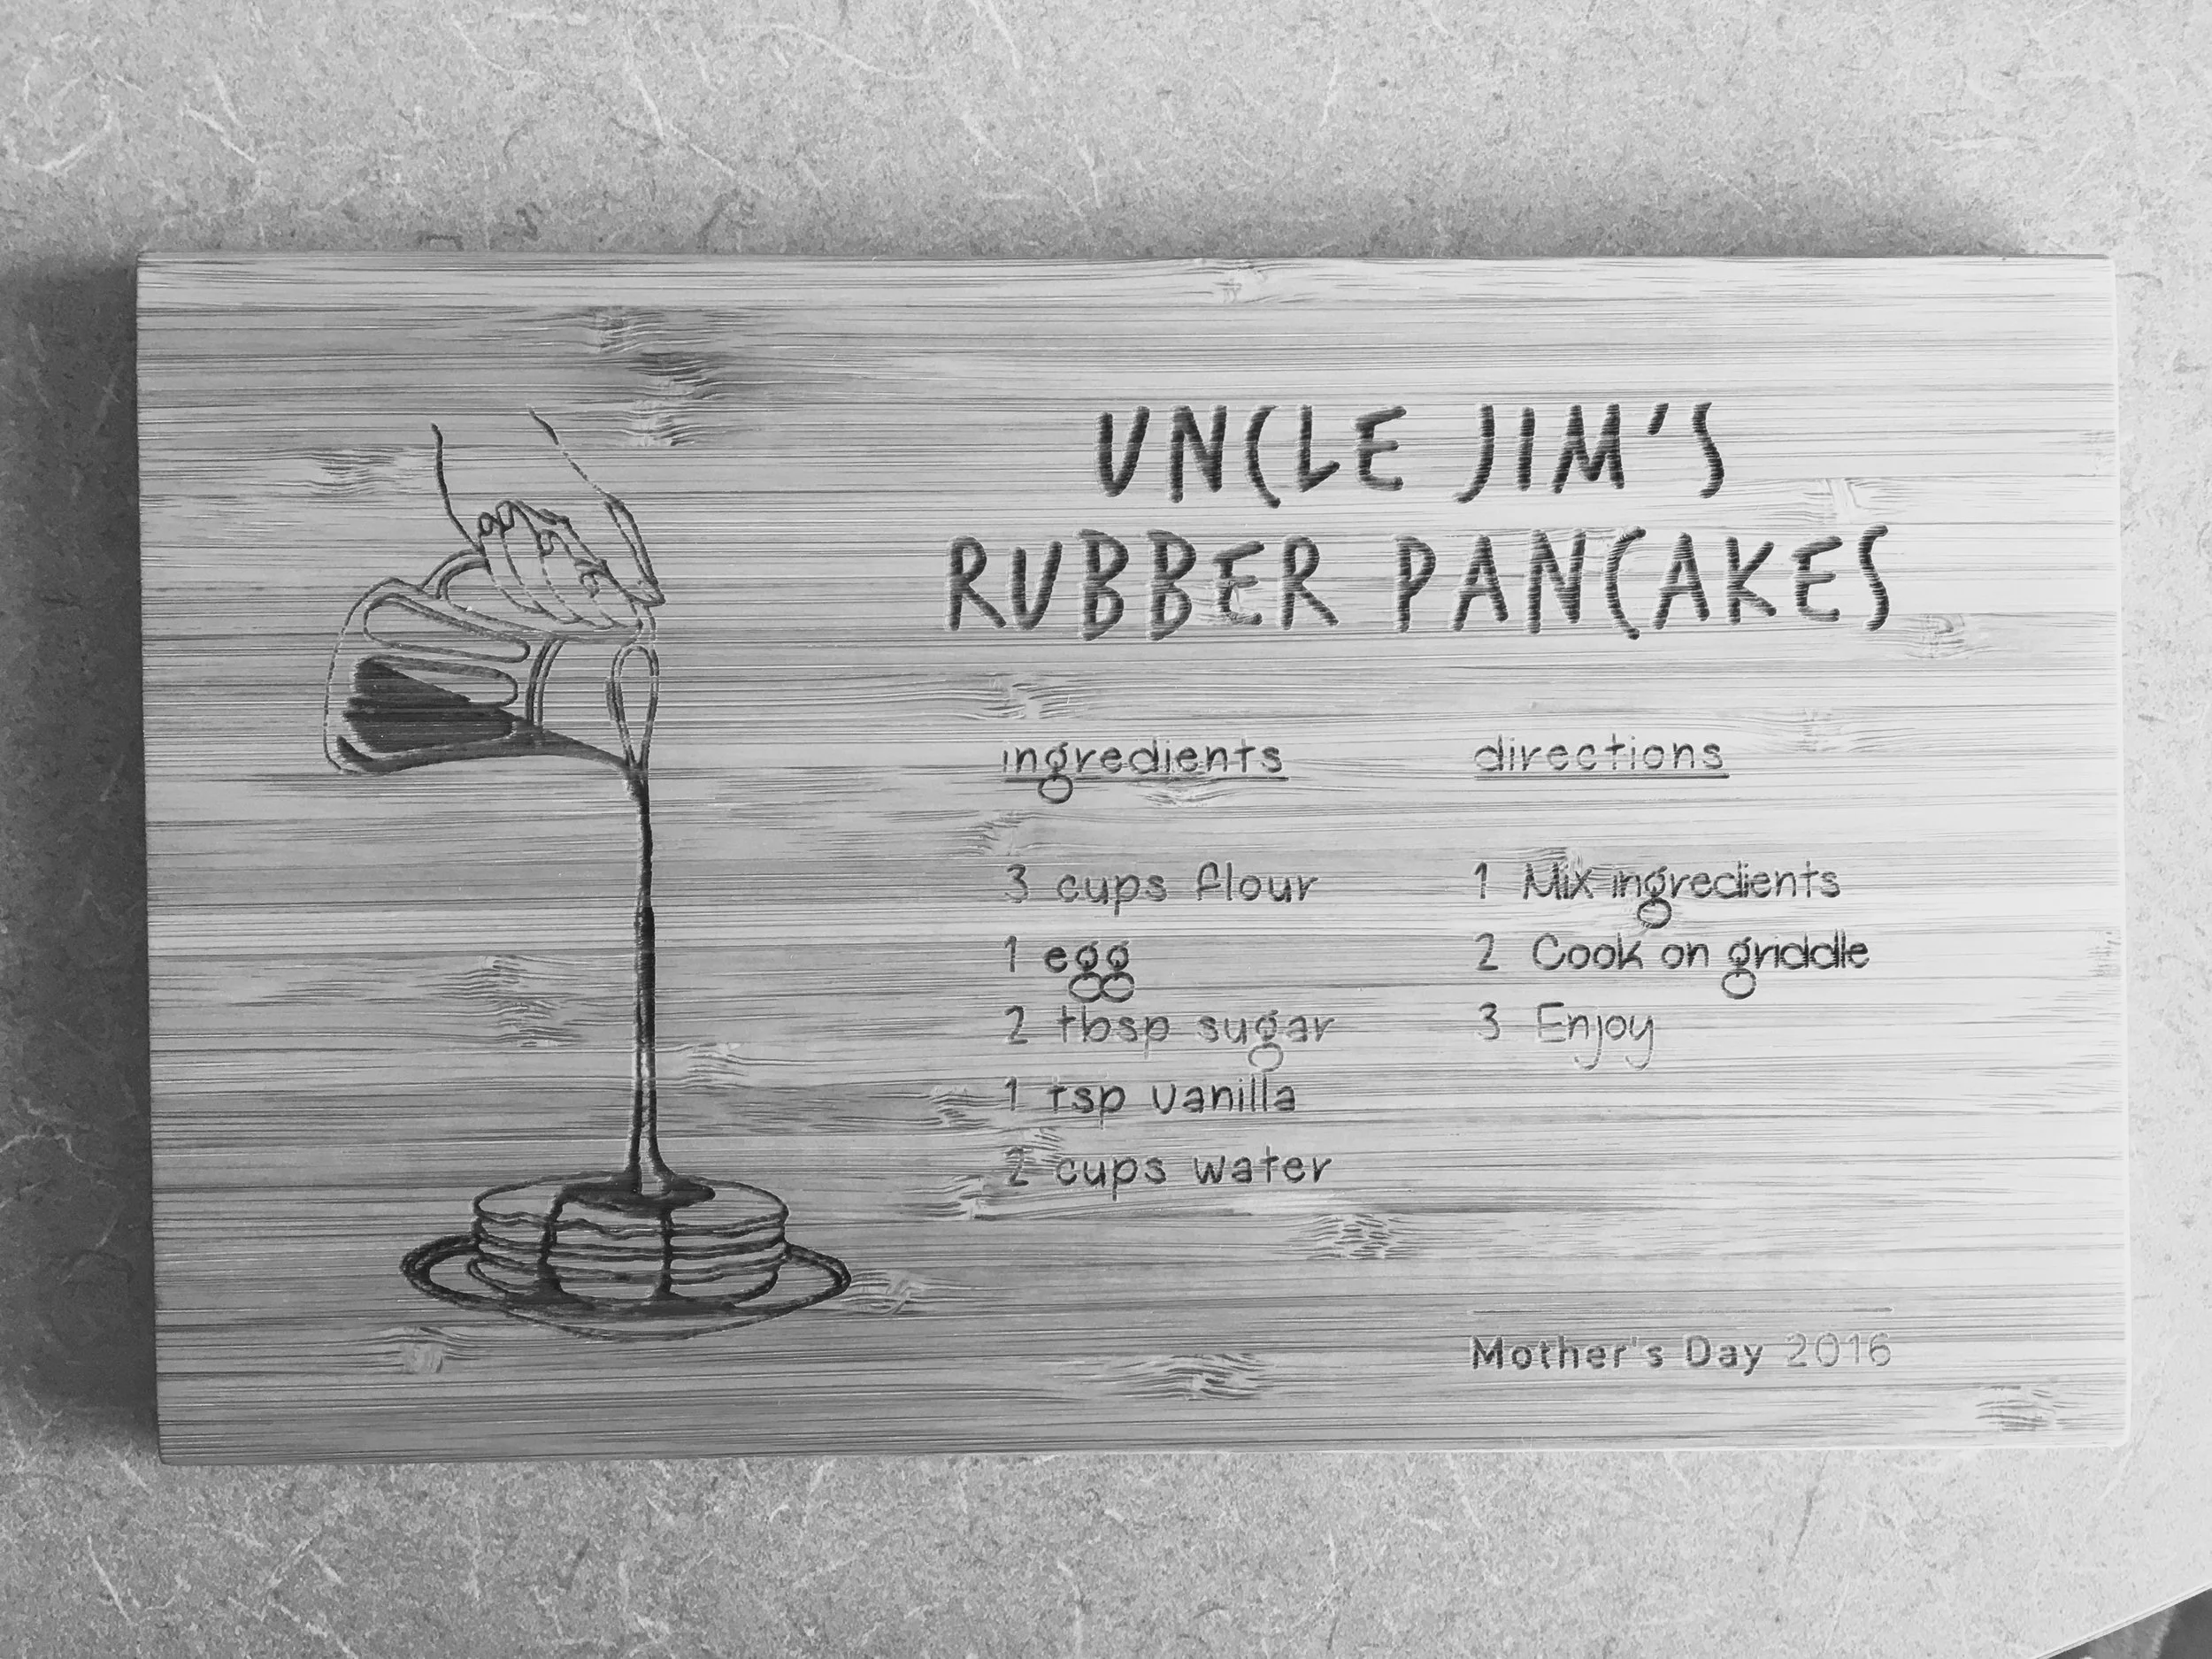 UNCLE JIM'S
RUBBER PANCAKES
ingredients
3 cups flour
1 egg
2 tbsp sugar
1 tsp vanilla
2 cups water
directions
1 Mix ingredients
2 Cook on griddle
3 Enjoy
Mother's Day 2016